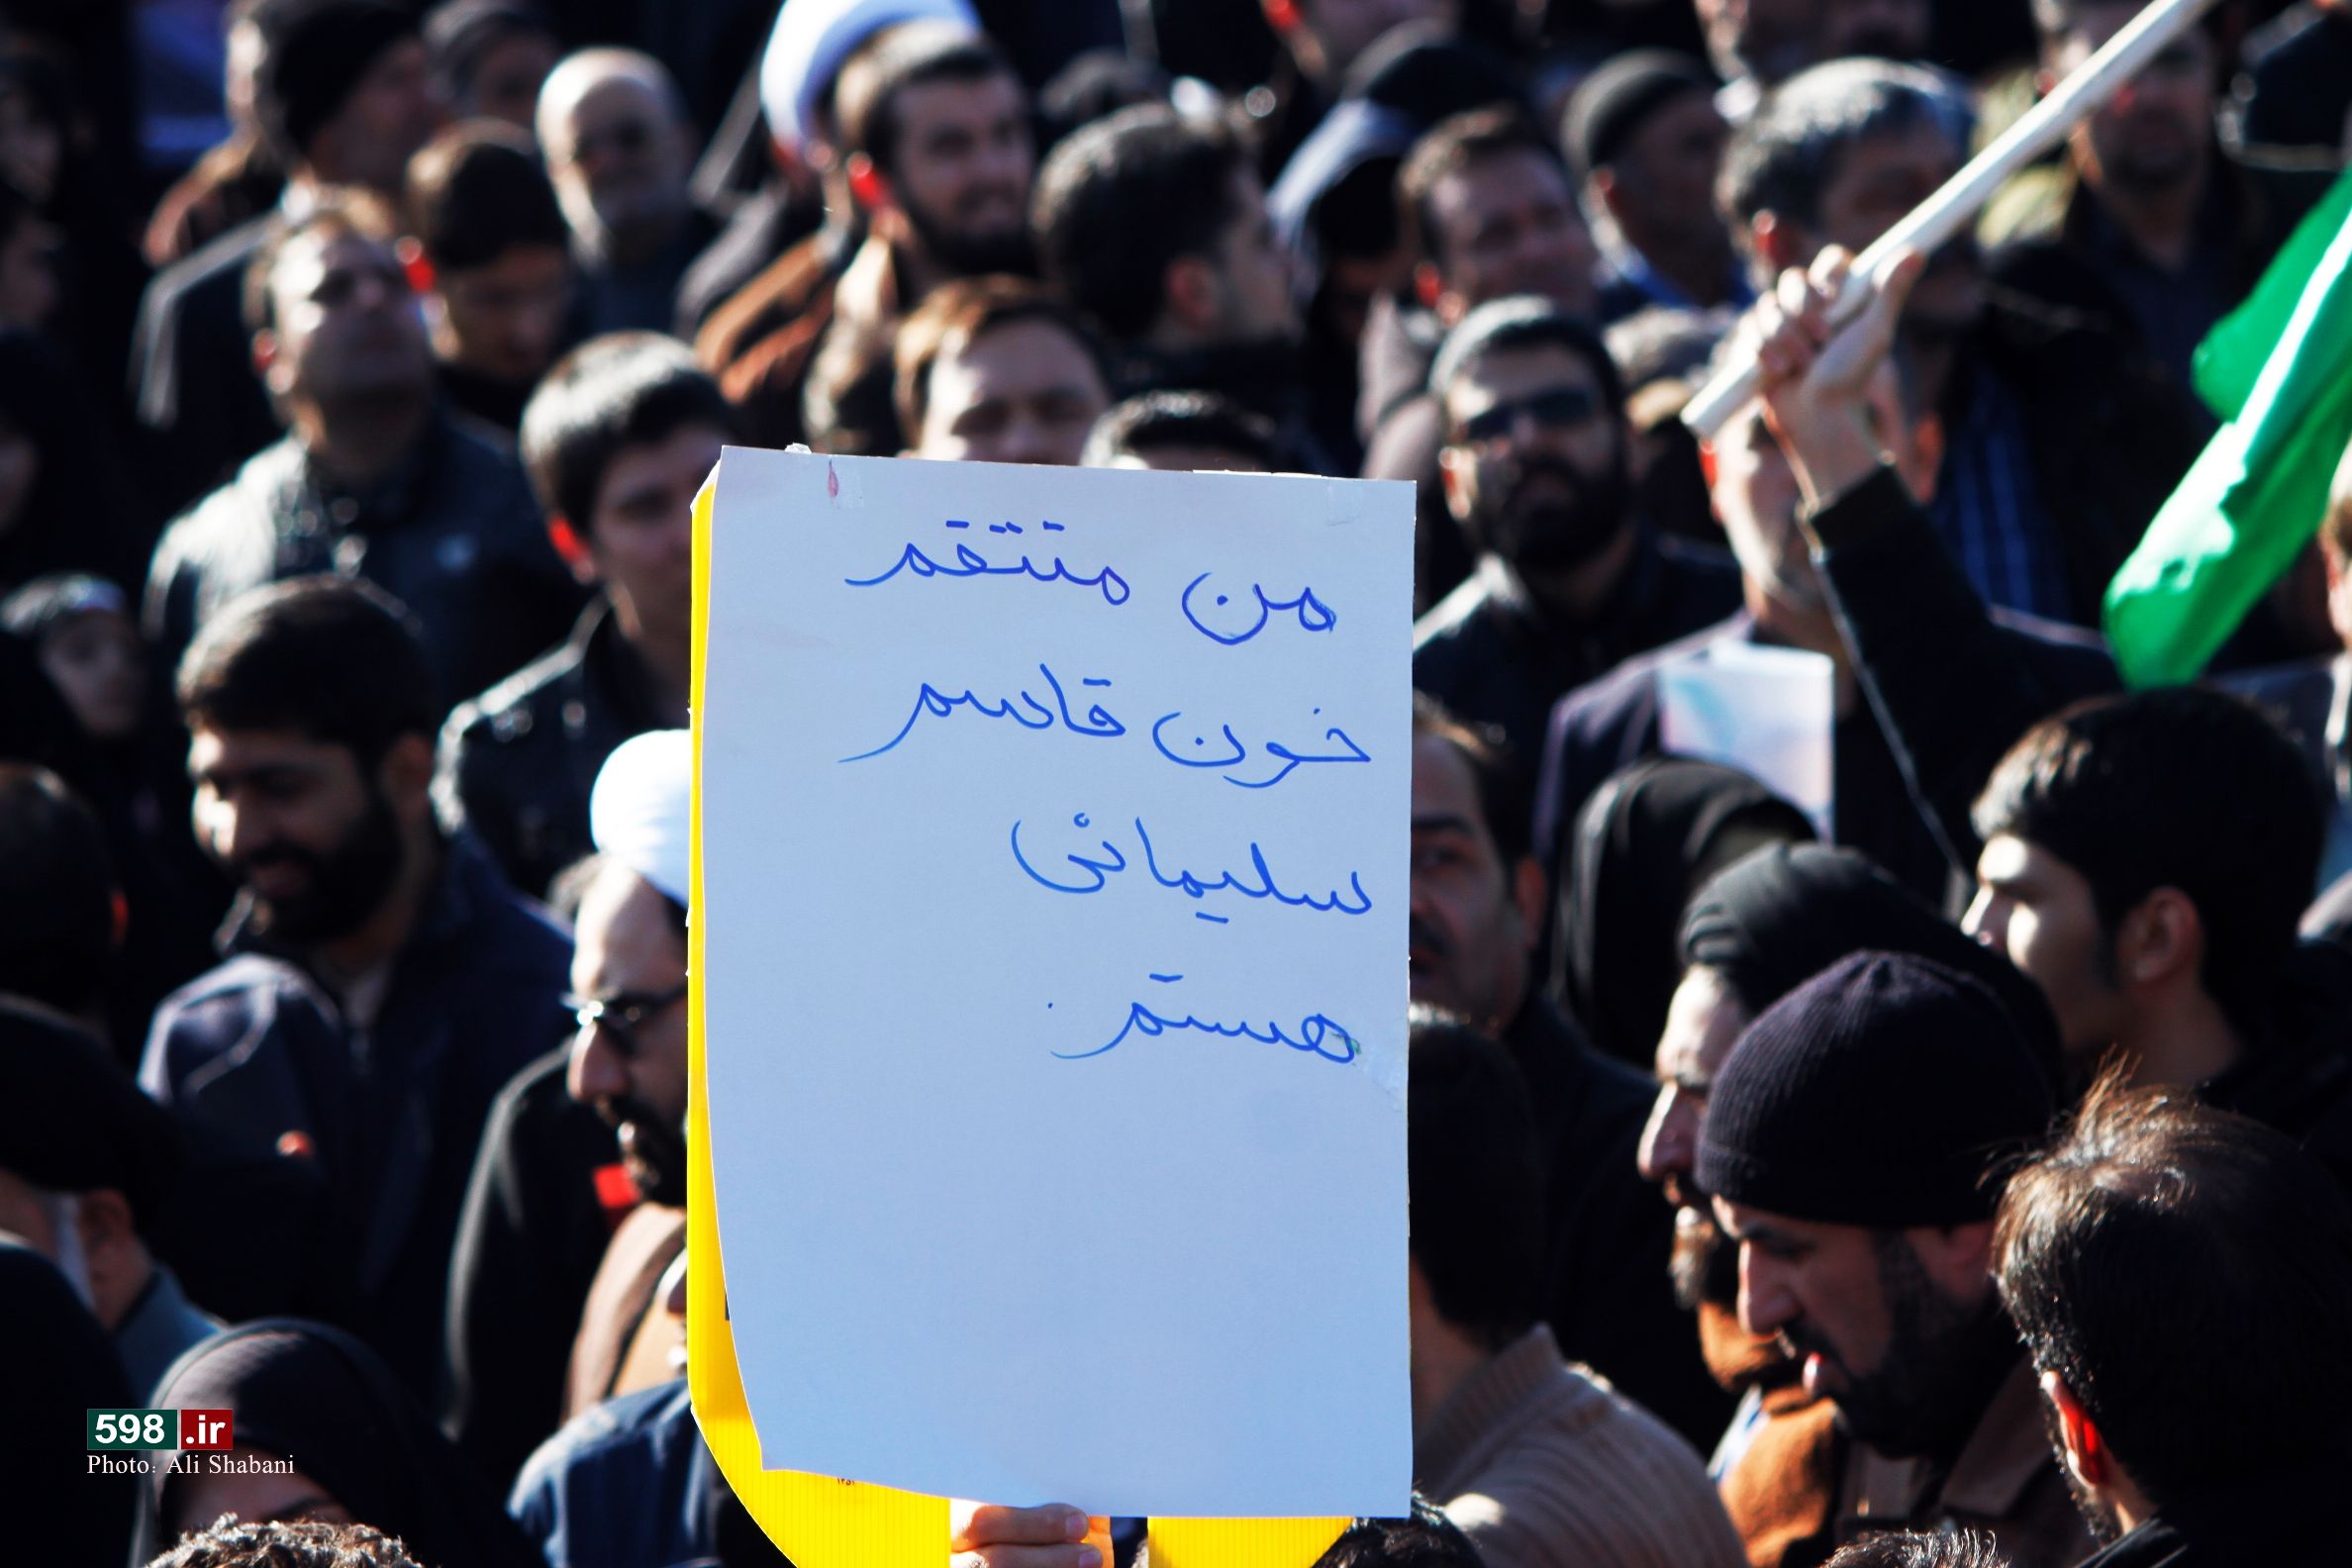 من منتقم
خون قاسم
سلیمانی
هستم.
598.ir
Photo: Ali Shabani